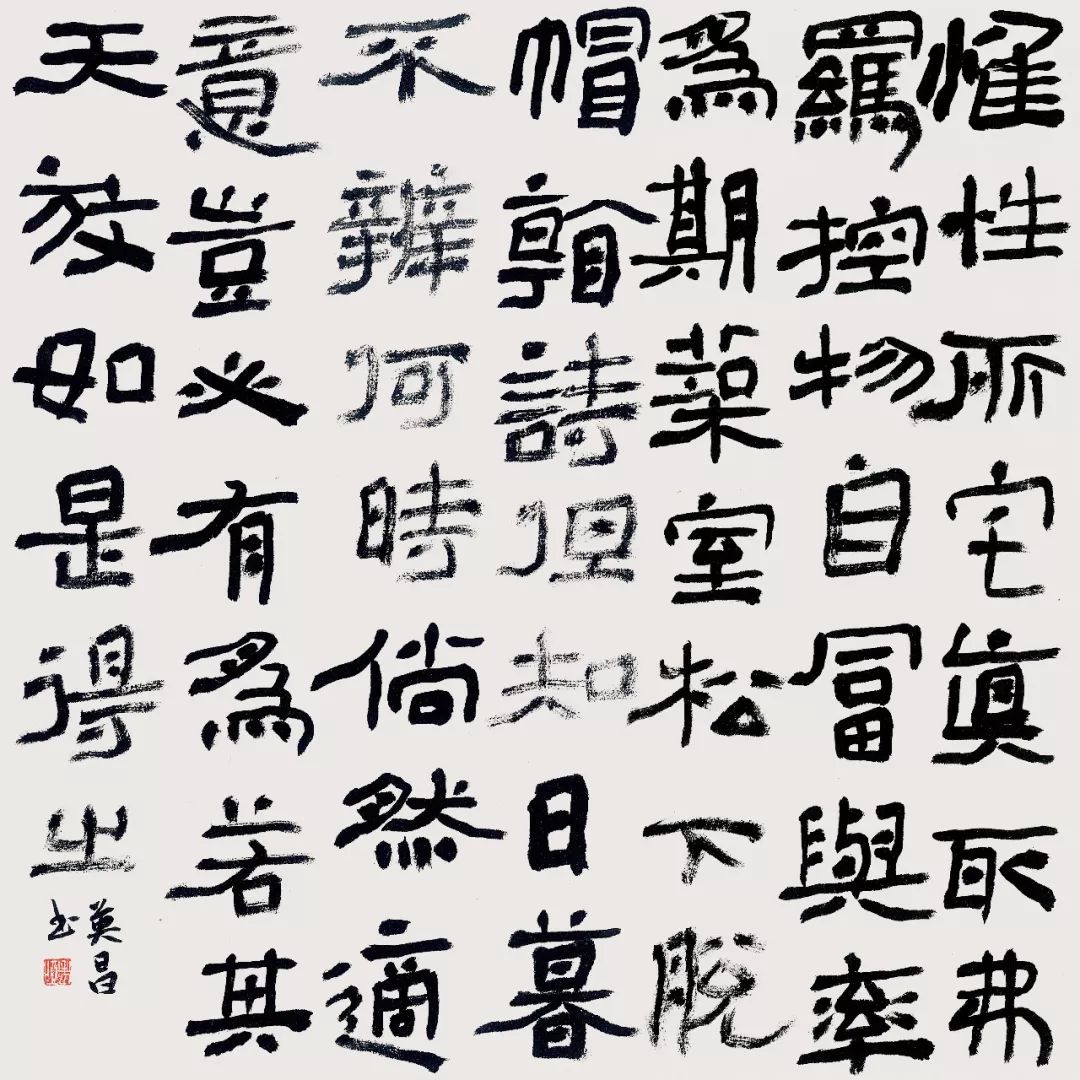 惟性所宅眞取弗
羈控物自富與率
爲期築室松下脫
帽看詩但知日暮
不辨何時倘然適
意豈必有爲若其
天放如是得之
英昌
书